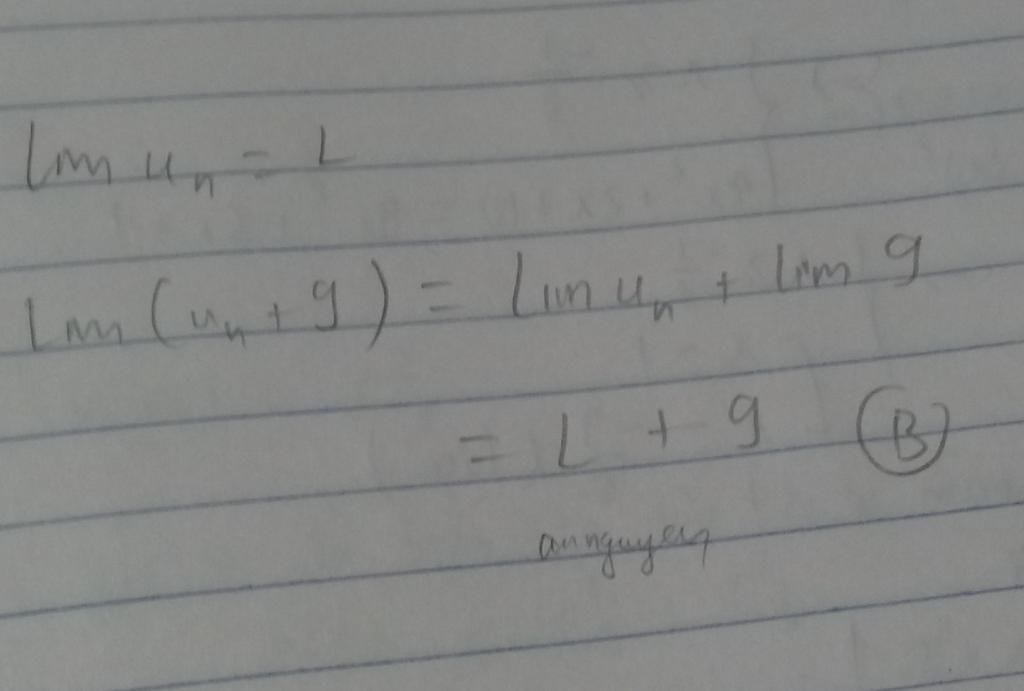 lim uₙ = L
lim (uₙ + 9) = lim uₙ + lim 9
= L + 9 B
annguyen